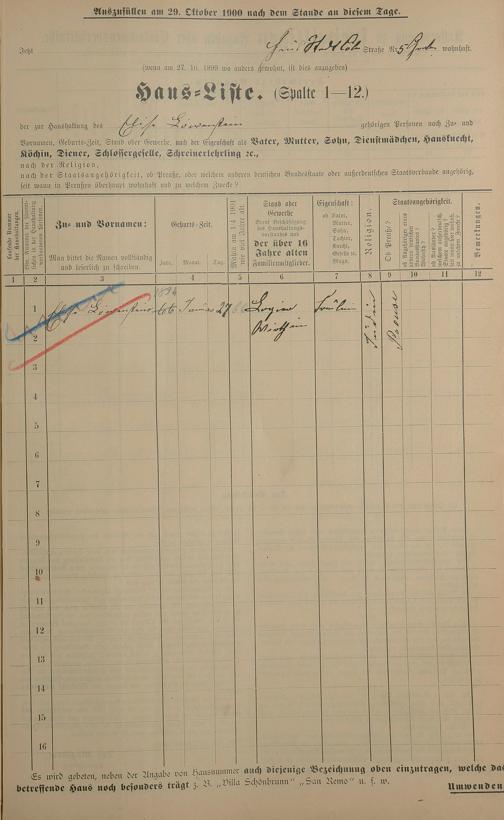 Auszufüllen am 29. Oktober 1900 nach dem Stande an diesem Tage.
Jetzt Straße Nr. 5 wohnhaft.
(wenn am 27. 10. 1899 wo anders gewohnt, ist dies anzugeben)
Haus-Liste. (Spalte 1—12.)
der zur Haushaltung des Elise Löwenstein gehörigen Personen nach Zu- und
Vornamen, Geburts-Zeit, Stand oder Gewerbe, nach der Eigenschaft als Vater, Mutter, Sohn, Dienstmädchen, Hausknecht,
Köchin, Diener, Schlossergeselle, Schreinerlehrling ꝛc.,
nach der Religion,
nach der Staatsangehörigkeit, ob Preuße, oder welchem anderen deutschen Bundesstaate oder außerdeutschen Staatsverbande angehörig,
seit wann in Preußen überhaupt wohnhaft und zu welchem Zwecke?
Zu- und Vornamen:
Man bittet die Namen vollständig
und leserlich zu schreiben.
Geburts-Zeit.
Jahr. Monat. Tag.
Stand oder
Gewerbe
der über 16
Jahre alten
Familienmitglieder.
Eigenschaft:
ob Vater,
Mutter,
Sohn,
Tochter,
Knecht,
Geselle ꝛc.
Magd.
Religion.
Staatsangehörigkeit.
Ob Preuße?
Bemerkungen.
1 2 3 4 5 6 7 8 9 10 11 12
1 Elise Löwenstein 66 Januar 27 Logier Fräulein Jüdin Preuße
2 Wirthin
3
4
5
6
7
8
9
10
11
12
13
14
15
16
Es wird gebeten, neben der Angabe von Hausnummer auch diejenige Bezeichnung oben einzutragen, welche das
betreffende Haus noch besonders trägt z. B. „Villa Schönbrunn" „San Remo" u. s. w.
Umwenden